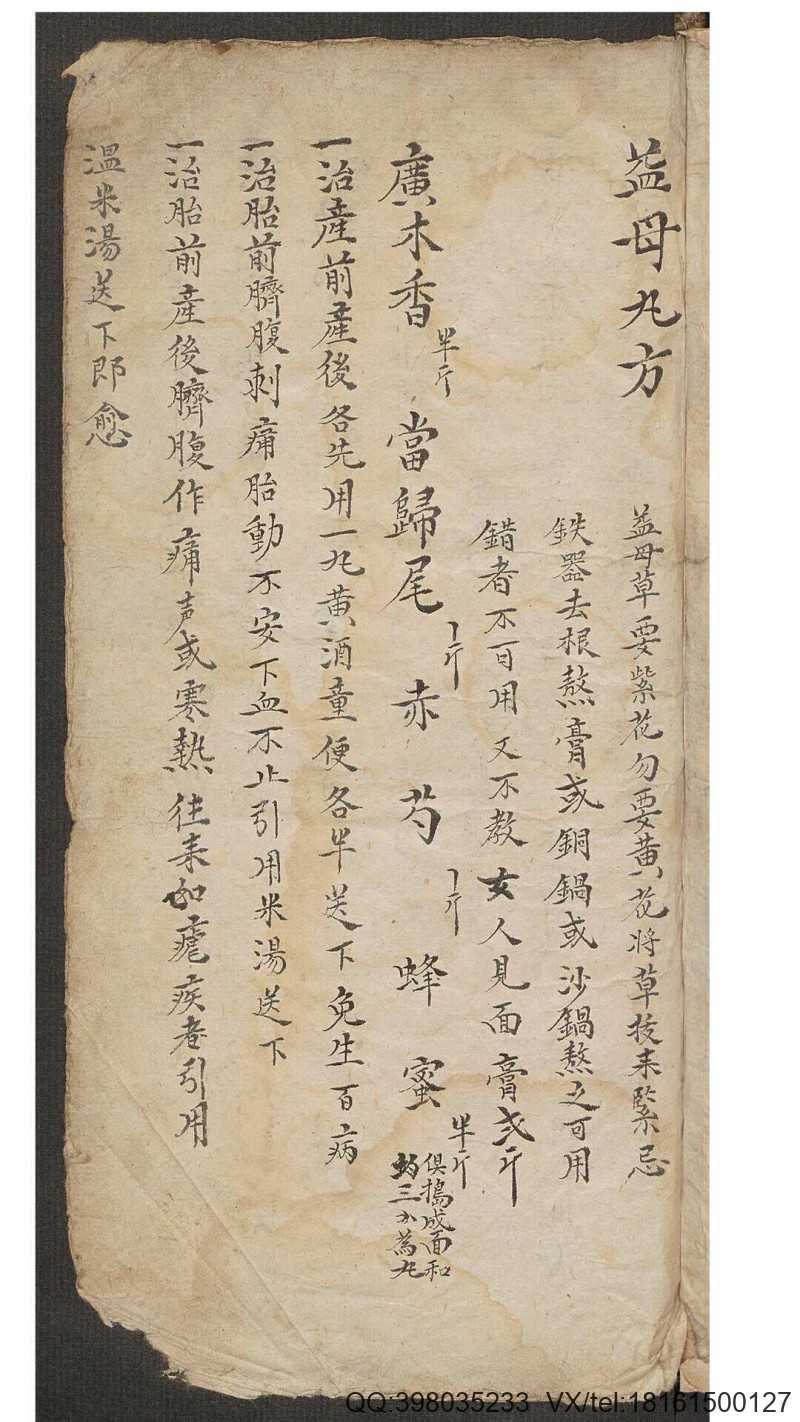 益母丸方
益母草要紫花勿要黃花將草拔来緊忌
鉄器去根熬膏或銅鍋或沙鍋熬之可用
錯者不可用又不教女人見面膏弍斤
廣木香半斤 當歸尾一斤 赤芍一斤 蜂蜜半斤 俱搗成面和蜜三分為丸
一治產前產後各先用一丸黃酒童便各半送下免生百病
一治胎前臍腹刺痛胎動不安下血不止引用米湯送下
一治胎前產後臍腹作痛声或寒熱往来如瘧疾者引用
温米湯送下即愈
QQ:398035233 VX/tel:18161500127